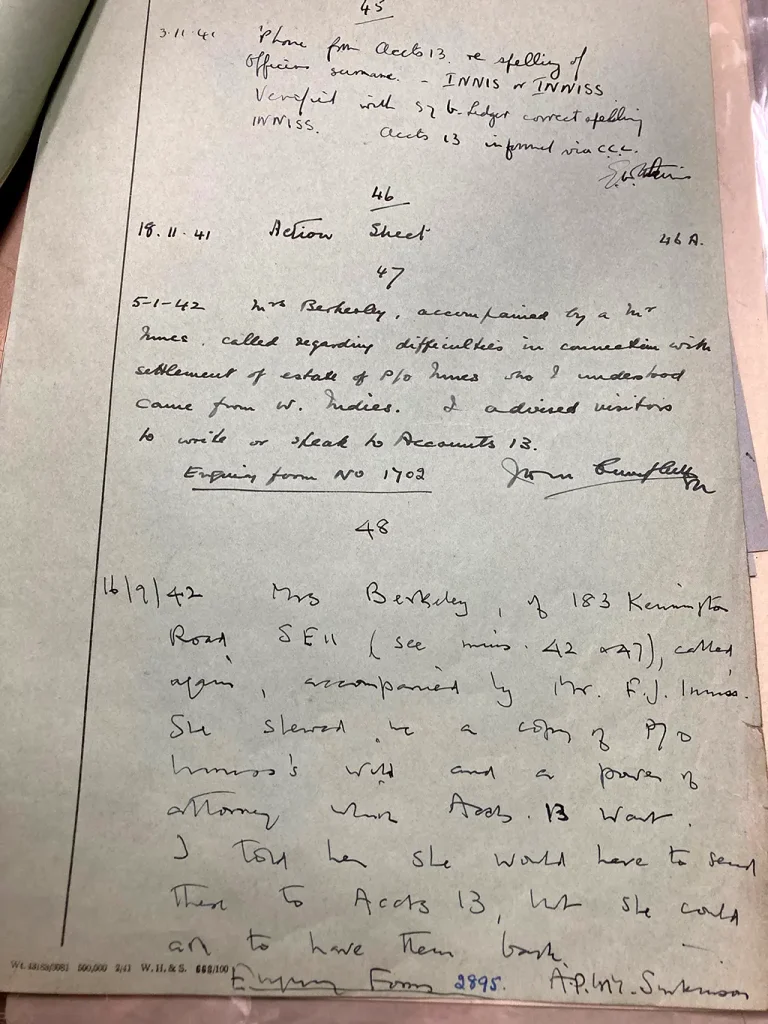 45
3.11.41 'Phone from Accts 13. re spelling of
Officers surname. - INNIS or INNISS
Verified with S7 b. Ledger correct spelling
INNISS. Accts 13 informed via C.C.C.
46
18.11.41 Action Sheet 46A.
47
5-1-42 Mrs Berkeley, accompained by a Mr
Innes. called regarding difficulties in connection with
settlement of estate of P/O Innes who I understood
came from W. Indies. I advised visitors
to write or speak to Accounts 13.
Enquiry form No 1702
48
16/9/42 Mrs Berkeley, of 183 Kennington
Road SE11 (see mins. 42 & 47), called
again, accompanied by Mr. F.J. Inniss.
She showed me a copy of P/O
Inniss's will and a power of
attorney which Accts. 13 want.
I told her she would have to send
these to Accts 13, but she could
ask to have them back.
Enquiry Form 2895. A.P.
500,000 2/41 W. H. & S. 668/100